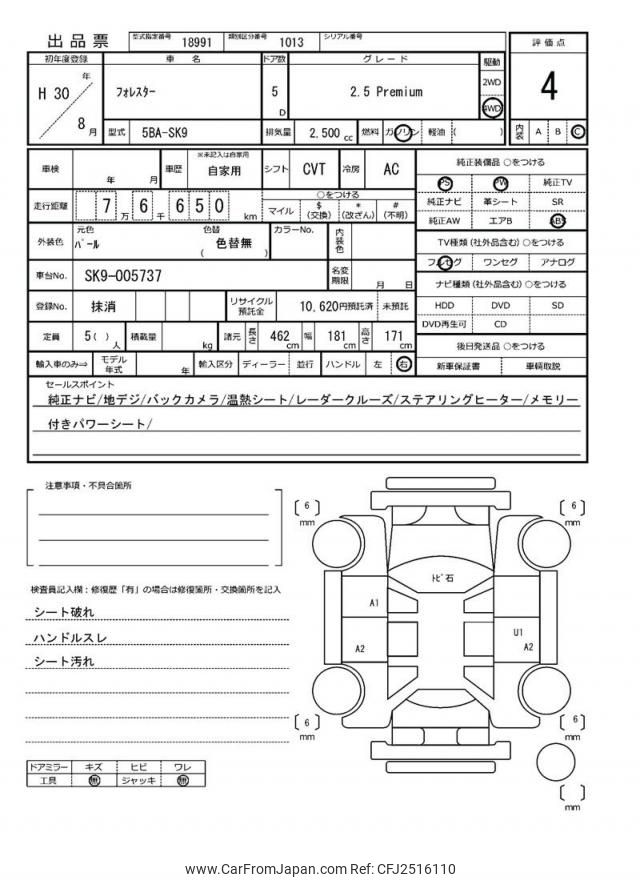 出品票 型式指定番号 18991 類別区分番号 1013 シリアル番号
初年度登録 車名 ドア数 グレード 駆動 評価点
H 30 年 8 月 フォレスター 5 D 2.5 Premium 2WD 4WD 4
型式 5BA-SK9 排気量 2,500 cc 燃料 ガソリン 軽油 ( ) 内装 A B C
車検 年 月 車歴 ※未記入は自家用 自家用 シフト CVT 冷房 AC 純正装備品 ○をつける
PS PW 純正TV
走行距離 7 万 6 千 6 5 0 km ○をつける マイル $ (交換) * (改ざん) # (不明) 純正ナビ 革シート SR
純正AW エアB ABS
外装色 元色 パール 色替 色替無 ( ) カラーNo. 内装色 TV種類 (社外品含む) ○をつける
フルセグ ワンセグ アナログ
車台No. SK9-005737 名変期限 月 日 ナビ種類 (社外品含む) ○をつける
登録No. 抹消 リサイクル預託金 10,620円預託済 未預託 HDD DVD SD
DVD再生可 CD
定員 5 ( ) 人 積載量 kg 諸元 長さ 462 cm 幅 181 cm 高さ 171 cm 後日発送品 ○をつける
輸入車のみ⇒ モデル年式 年 輸入区分 ディーラー 並行 ハンドル 左 右 新車保証書 車輌取説
セールスポイント
純正ナビ/地デジ/バックカメラ/温熱シート/レーダークルーズ/ステアリングヒーター/メモリー
付きパワーシート/
注意事項・不具合箇所
[ 6 ] mm [ 6 ] mm
トビ石
検査員記入欄:修復歴「有」の場合は修復箇所・交換箇所を記入
シート破れ A1
ハンドルスレ U1
A2 A2
シート汚れ
[ 6 ] mm [ 6 ] mm
ドアミラー キズ ヒビ ワレ
工具 無 ジャッキ 無
[ ] mm
www.CarFromJapan.com Ref: CFJ2516110